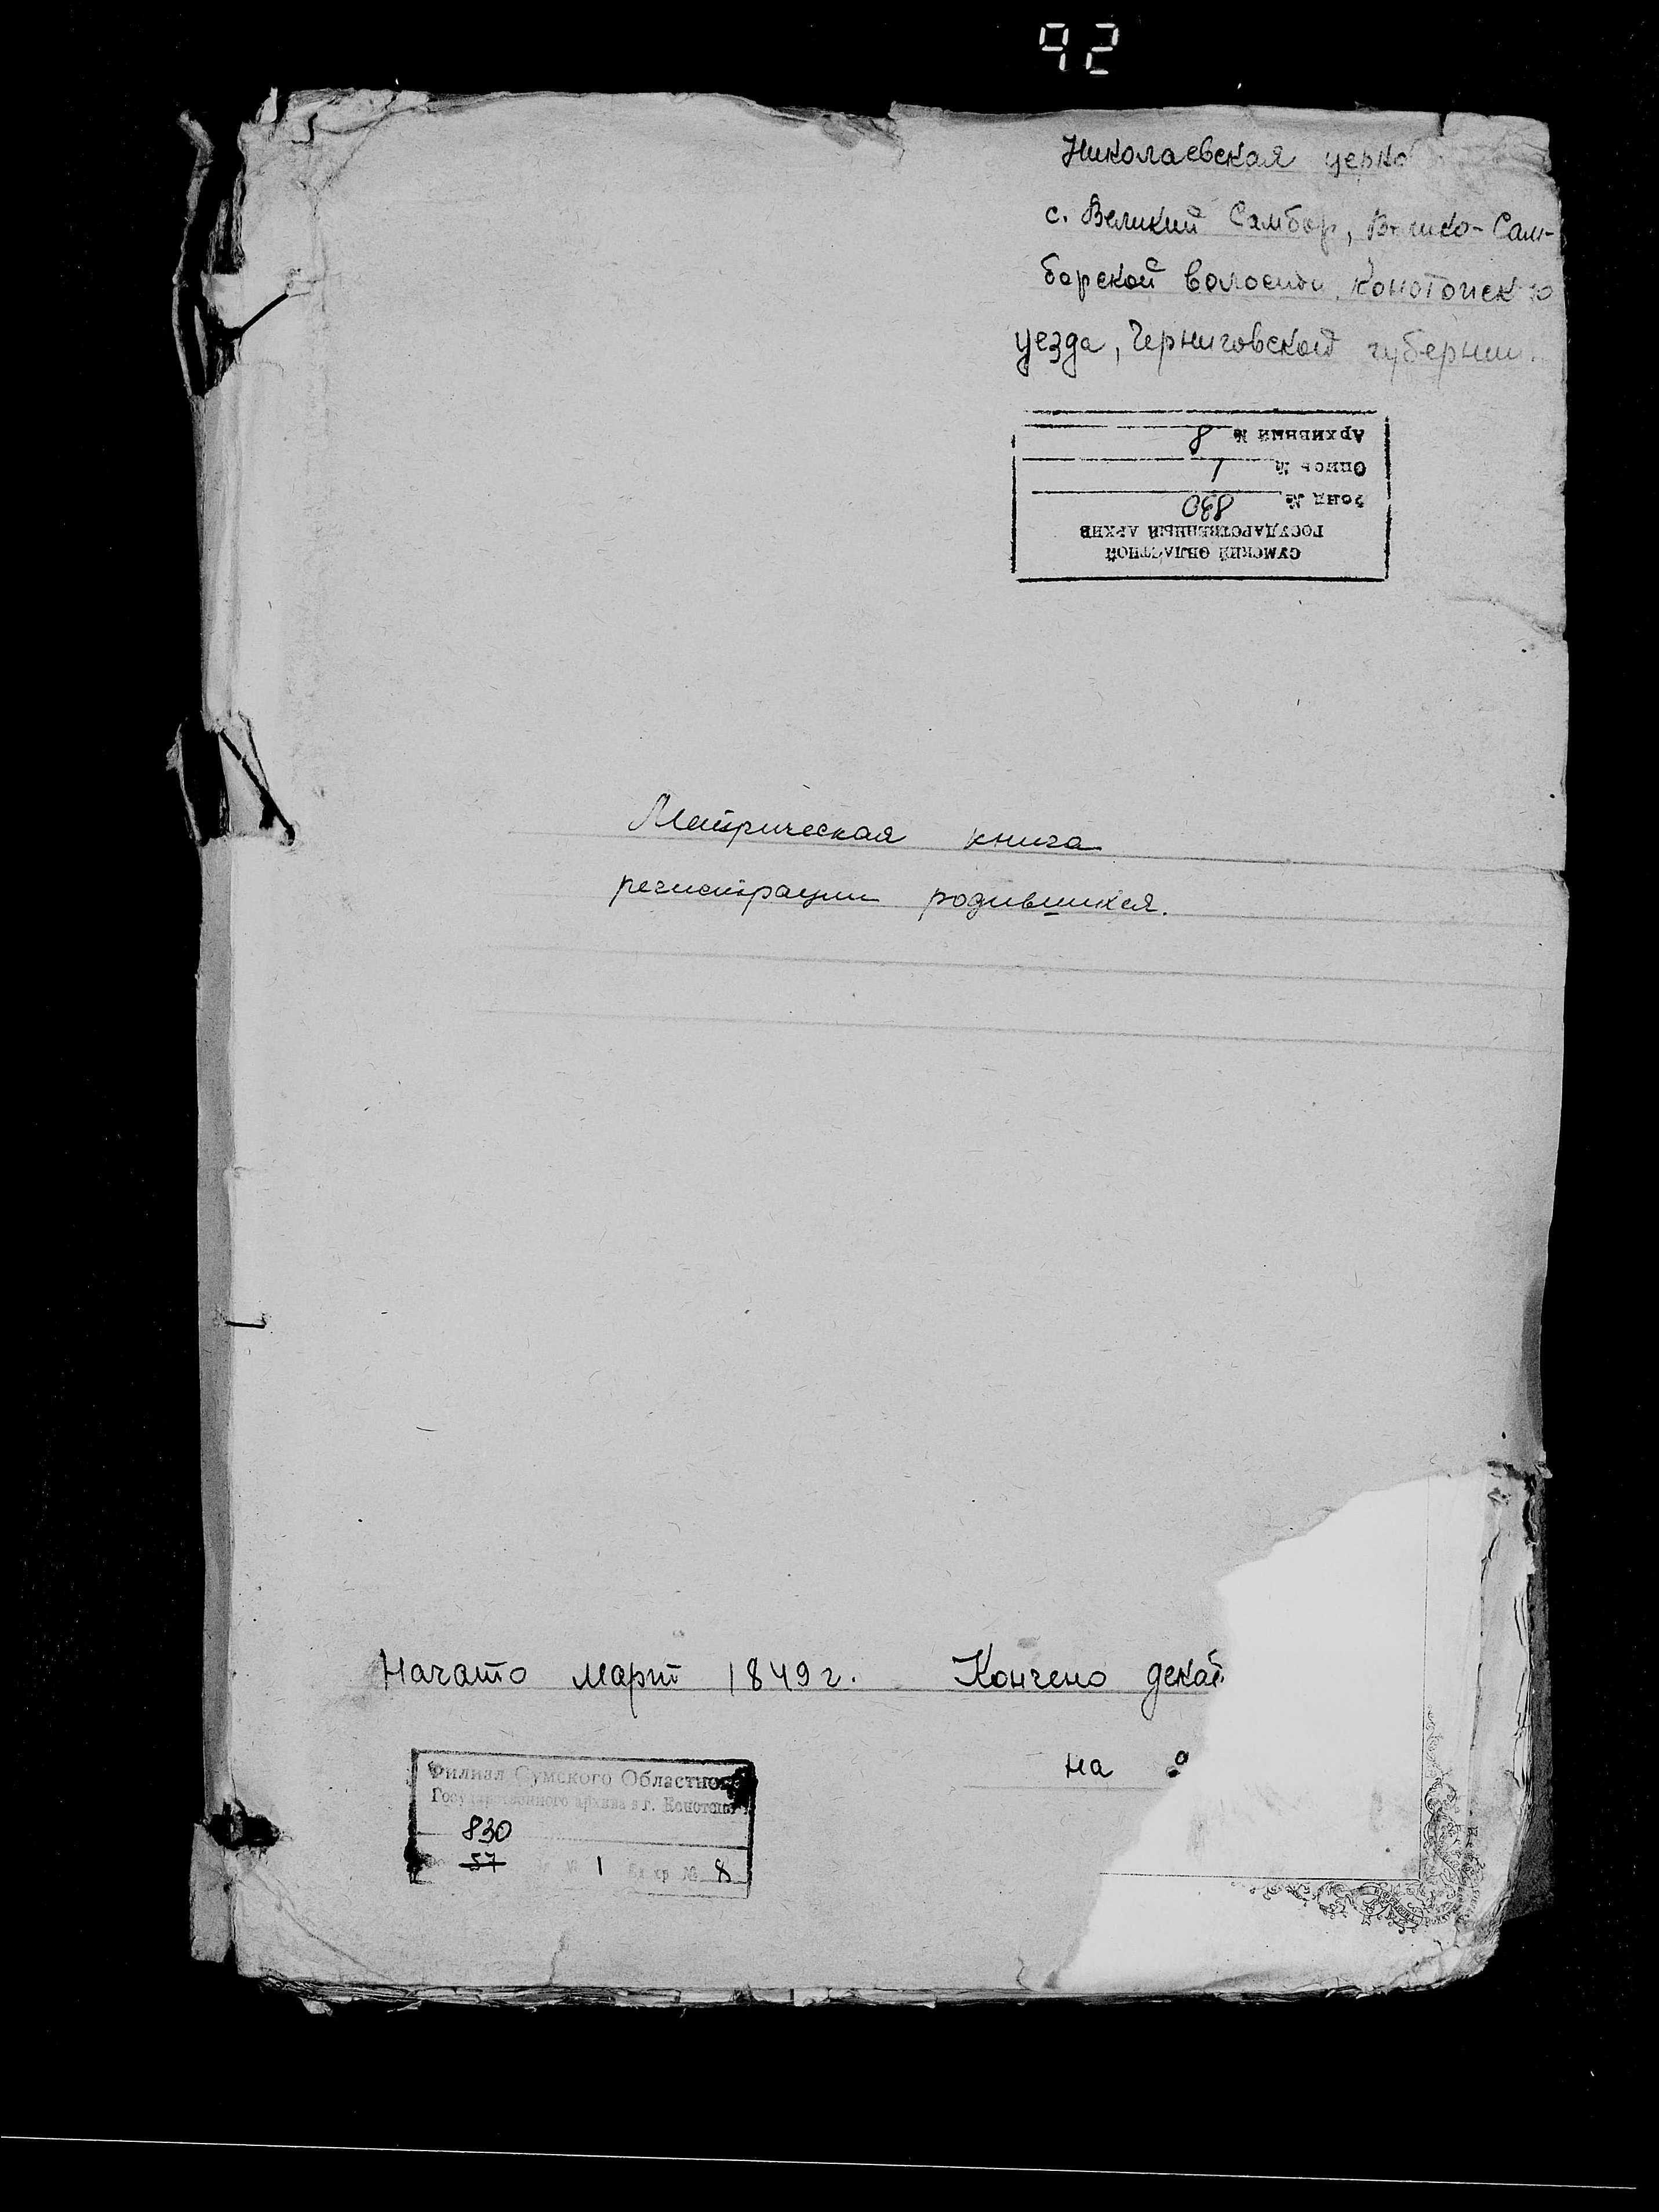 92
Николаевская церко
с. Великий Самбор, Велико-Сам-
борской волости, Конотопск го
уезда, Черниговской губернии.
СУМСКИЙ ОБЛАСТНОЙ
ГОСУДАРСТВЕННЫЙ АРХИВ
Фонд № 830
Опись № 1
Архивный № 8
Метрическая книга
регистрации родившихся.
Начато март 1849 г. Кончено декаб
на
Филиал Сумского Областного
Государственного архива в г. Конотопе
830
57 № 1 Ед хр № 8